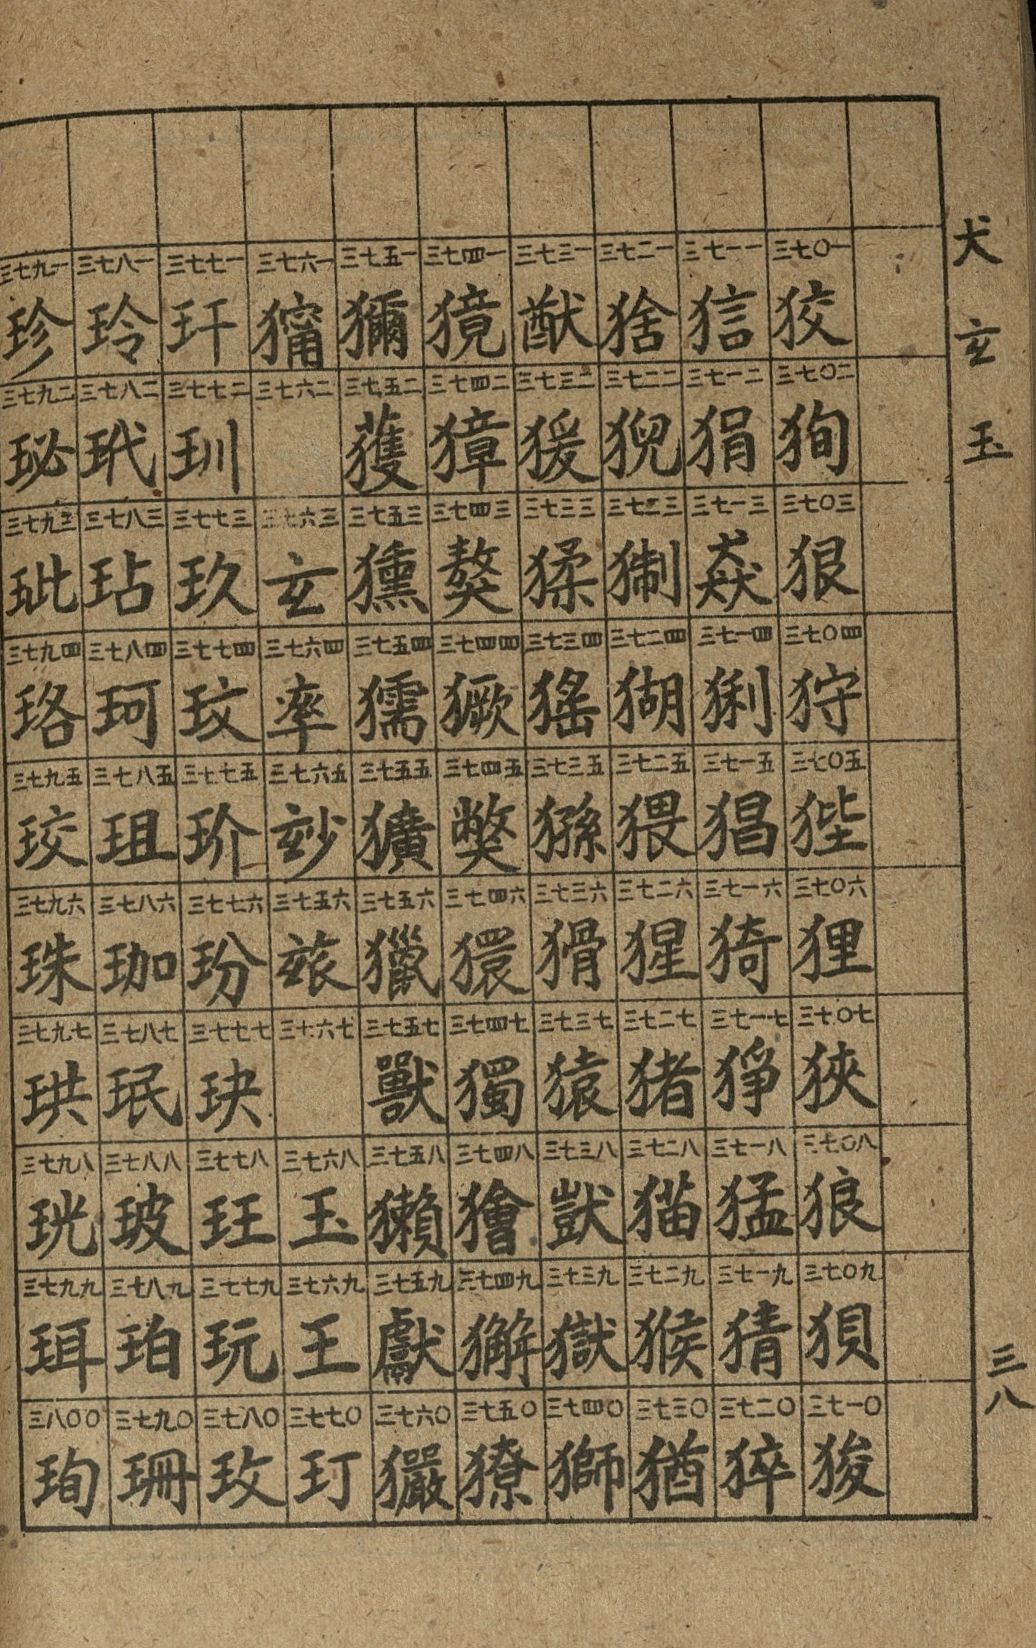 犬 玄 玉
三八
三七〇一 狡 三七〇二 狥 三七〇三 狠 三七〇四 狩 三七〇五 狴 三七〇六 狸 三七〇七 狹 三七〇八 狼 三七〇九 狽 三七一〇 狻
三七一一 三七一二 狷 三七一三 猋 三七一四 猁 三七一五 猖 三七一六 猗 三七一七 猙 三七一八 猛 三七一九 猜 三七二〇 猝
三七二一 猞 三七二二 猊 三七二三 猘 三七二四 猢 三七二五 猥 三七二六 猩 三七二七 猪 三七二八 猫 三七二九 猴 三七三〇 猶
三七三一 猷 三七三二 猨 三七三三 猱 三七三四 猺 三七三五 猻 三七三六 猾 三七三七 猿 三七三八 獃 三七三九 獄 三七四〇 獅
三七四一 獍 三七四二 獐 三七四三 獒 三七四四 獗 三七四五 獘 三七四六 獧 三七四七 獨 三七四八 獪 三七四九 獬 三七五〇 獠
三七五一 獮 三七五二 獲 三七五三 獯 三七五四 獳 三七五五 獷 三七五六 獵 三七五七 獸 三七五八 獺 三七五九 獻 三七六〇 玁
三七六一 三七六二 三七六三 玄 三七六四 率 三七六五 玅 三七五六 玆 三七六七 三七六八 玉 三七六九 王 三七七〇 玎
三七七一 玕 三七七二 玔 三七七三 玖 三七七四 玟 三七七五 玠 三七七六 玢 三七七七 玦 三七七八 玨 三七七九 玩 三七八〇 玫
三七八一 玲 三七八二 玳 三七八三 玷 三七八四 珂 三七八五 珇 三七八六 珈 三七八七 珉 三七八八 玻 三七八九 珀 三七九〇 珊
三七九一 珍 三七九二 珌 三七九三 玼 三七九四 珞 三七九五 珓 三七九六 珠 三七九七 珙 三七九八 珖 三七九九 珥 三八〇〇 珣